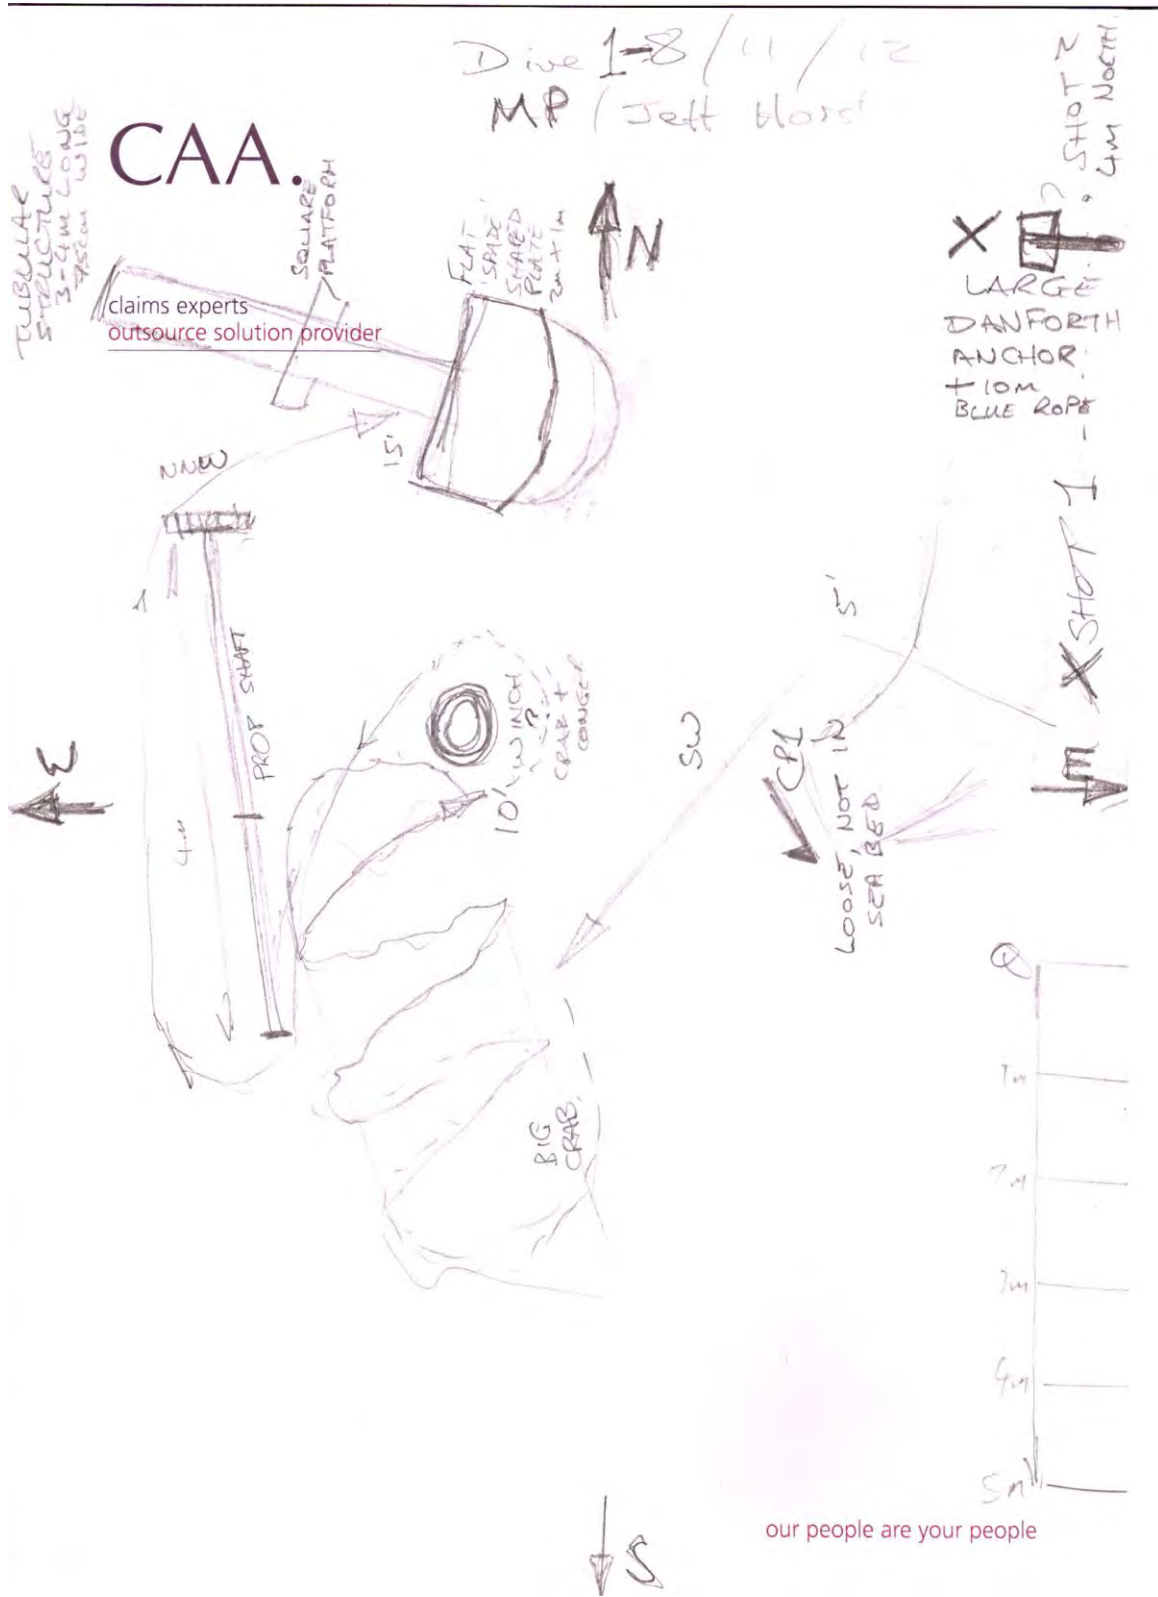 Dive 1-8/11/12
MP / Jeff Horst
CAA.
claims experts
outsource solution provider
TUBULAR
STRUCTURE
3-4M LONG
75cm WIDE
SQUARE
PLATFORM
FLAT
'SPADE'
SHAPED
PLATE
2m+1m
N
X
SHOT 2
4M NORTH
LARGE
DANFORTH
ANCHOR
+10M
BLUE ROPE
NNW
15'
X SHOT 1
5'
W
PROP SHAFT
4M
10'
WINCH
?
CRAB +
CONGER
SW
CP1
LOOSE, NOT IN
SEA BED
E
BIG
CRAB.
0
1m
2m
3m
4m
5m
S
our people are your people